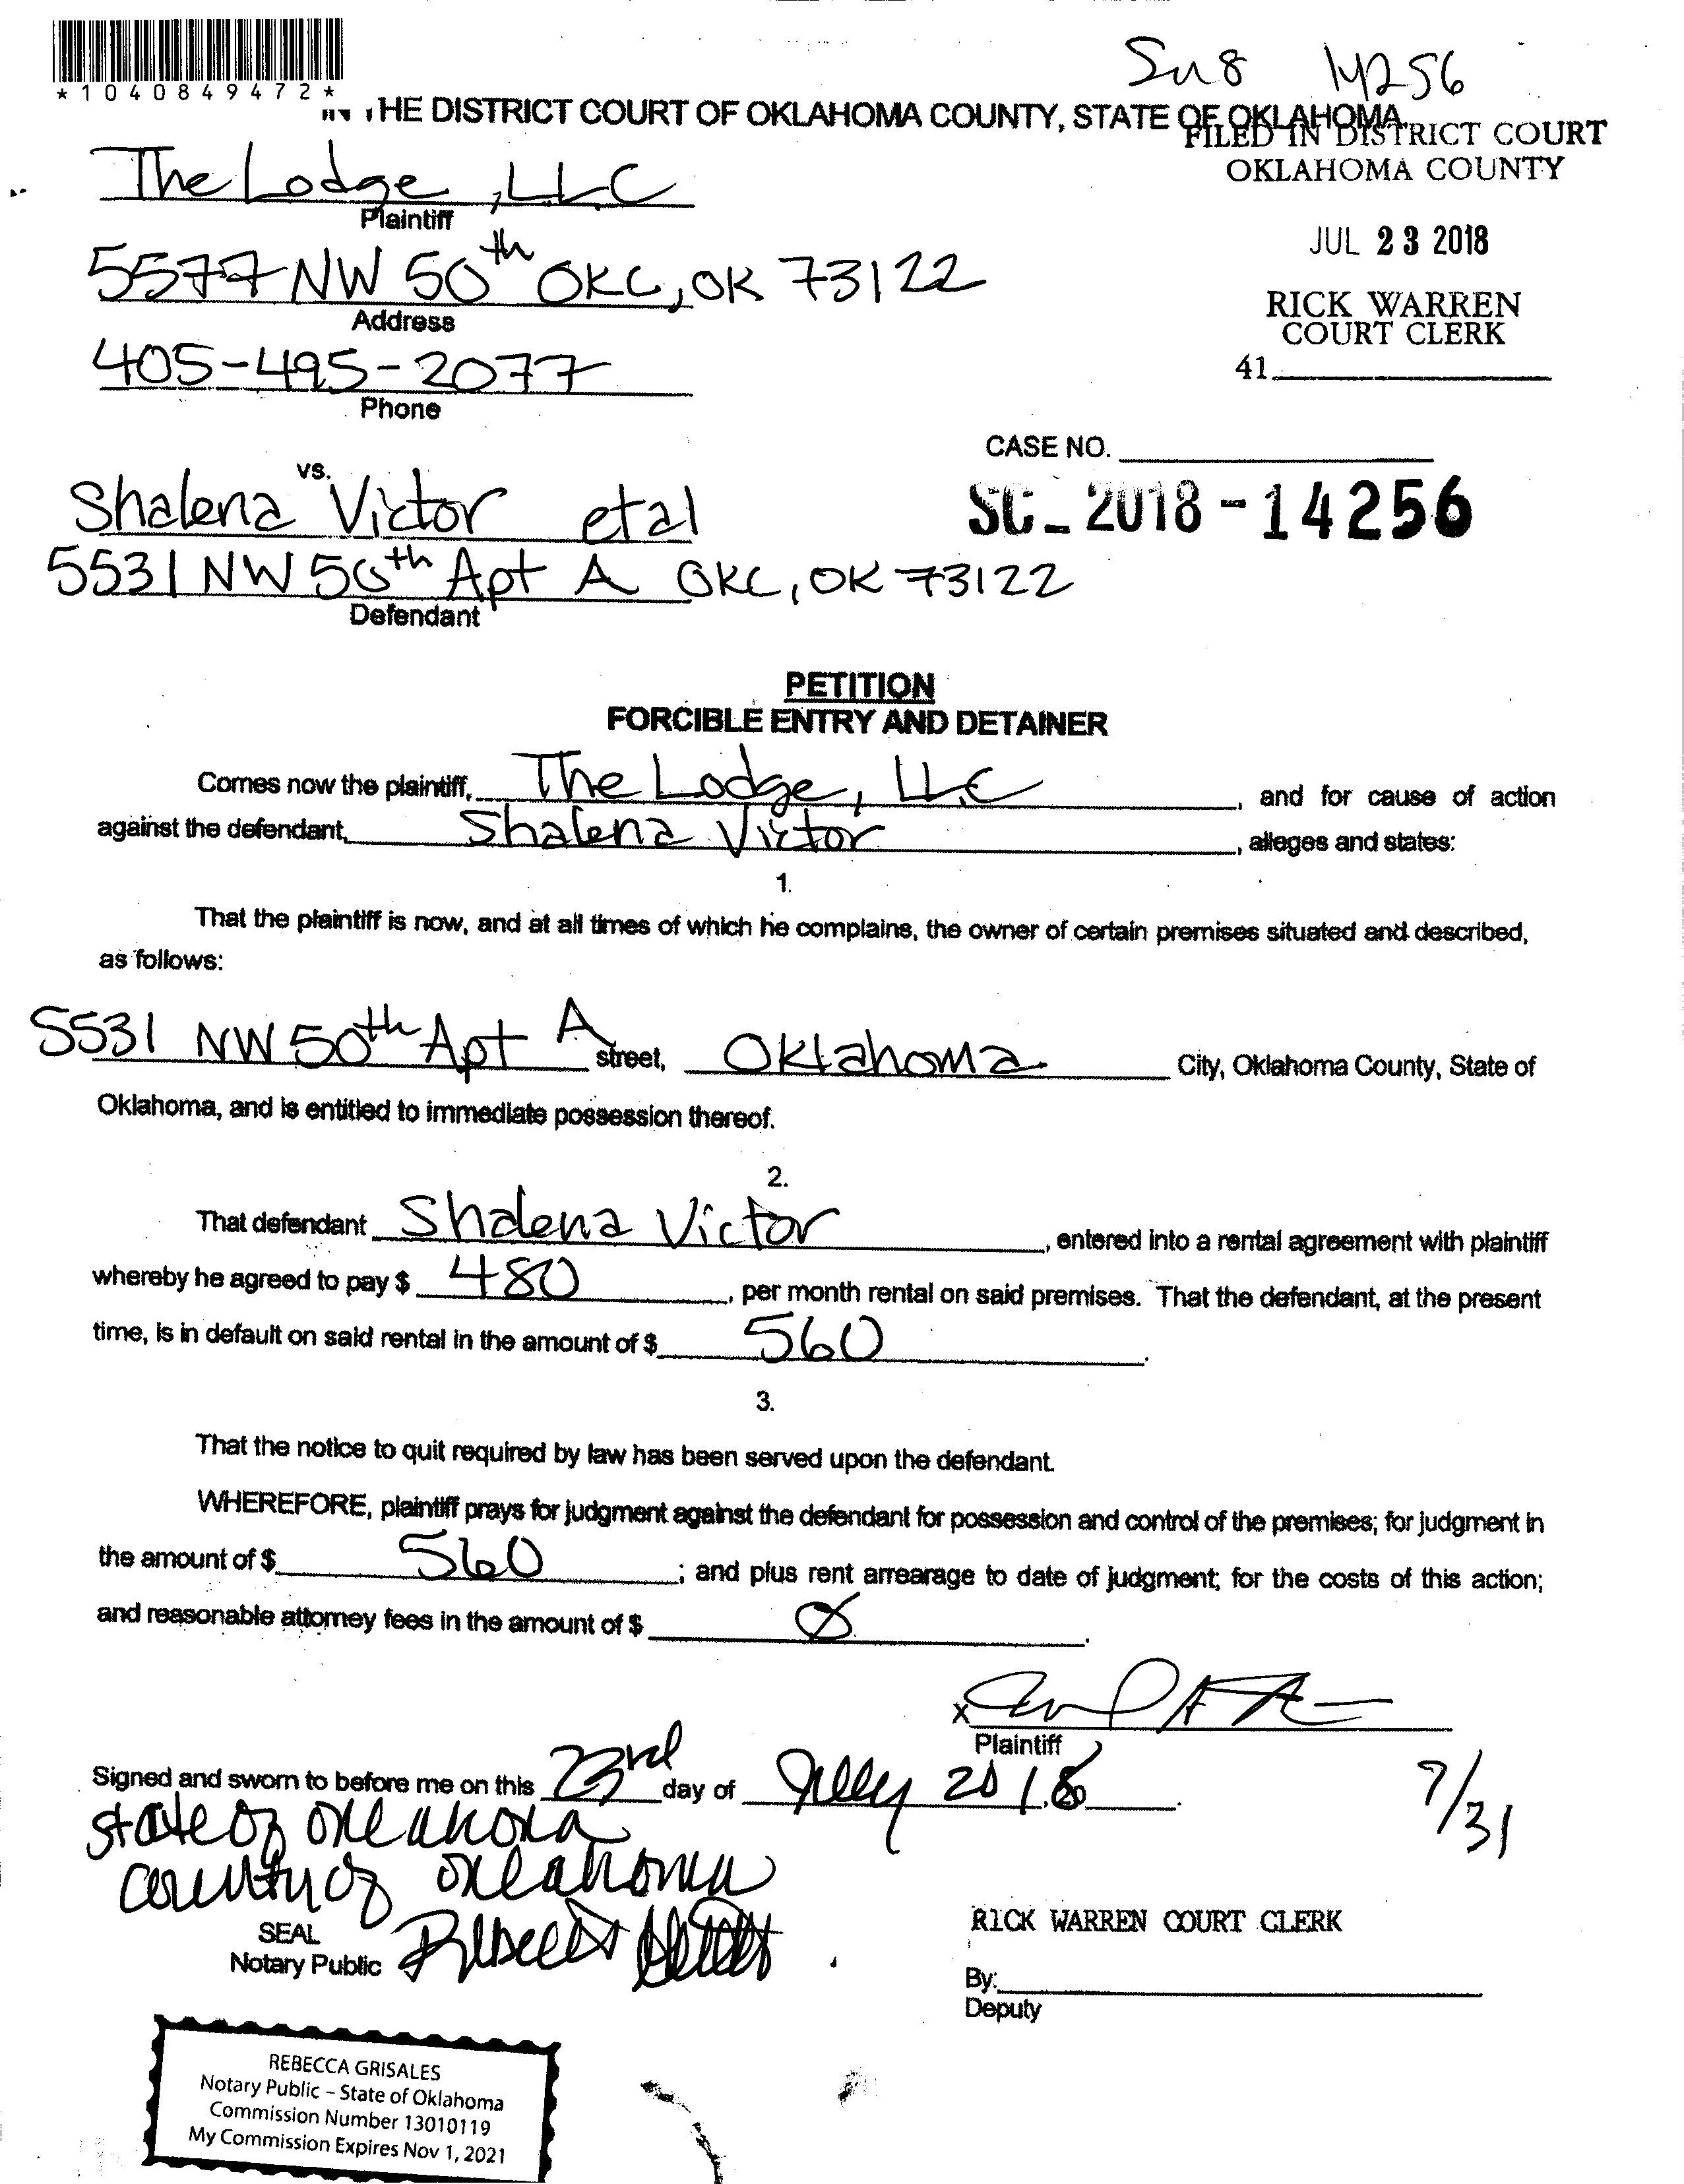 Sn8 14256
*1040849472*
IN THE DISTRICT COURT OF OKLAHOMA COUNTY, STATE OF OKLAHOMA
FILED IN DISTRICT COURT
OKLAHOMA COUNTY
The Lodge, LLC
Plaintiff
JUL 23 2018
5577 NW 50th OKC, OK 73122
Address
RICK WARREN
COURT CLERK
405-495-2077
41
Phone
CASE NO.
vs.
Shalena Victor etal
SC-2018-14256
5531 NW 50th Apt A OKC, OK 73122
Defendant
PETITION
FORCIBLE ENTRY AND DETAINER
Comes now the plaintiff, The Lodge, LLC, and for cause of action
against the defendant, Shalena Victor, alleges and states:
1.
That the plaintiff is now, and at all times of which he complains, the owner of certain premises situated and described,
as follows:
5531 NW 50th Apt A street, Oklahoma City, Oklahoma County, State of
Oklahoma, and is entitled to immediate possession thereof.
2.
That defendant Shalena Victor, entered into a rental agreement with plaintiff
whereby he agreed to pay $ 480, per month rental on said premises. That the defendant, at the present
time, is in default on said rental in the amount of $ 560.
3.
That the notice to quit required by law has been served upon the defendant.
WHEREFORE, plaintiff prays for judgment against the defendant for possession and control of the premises; for judgment in
the amount of $ 560; and plus rent arrearage to date of judgment; for the costs of this action;
and reasonable attorney fees in the amount of $ Ø.
X
Plaintiff
Signed and sworn to before me on this 23rd day of July 2018.
7/31
state of Oklahoma
county of Oklahoma
SEAL
Notary Public Rebecca
RICK WARREN COURT CLERK
By:
Deputy
REBECCA GRISALES
Notary Public – State of Oklahoma
Commission Number 13010119
My Commission Expires Nov 1, 2021